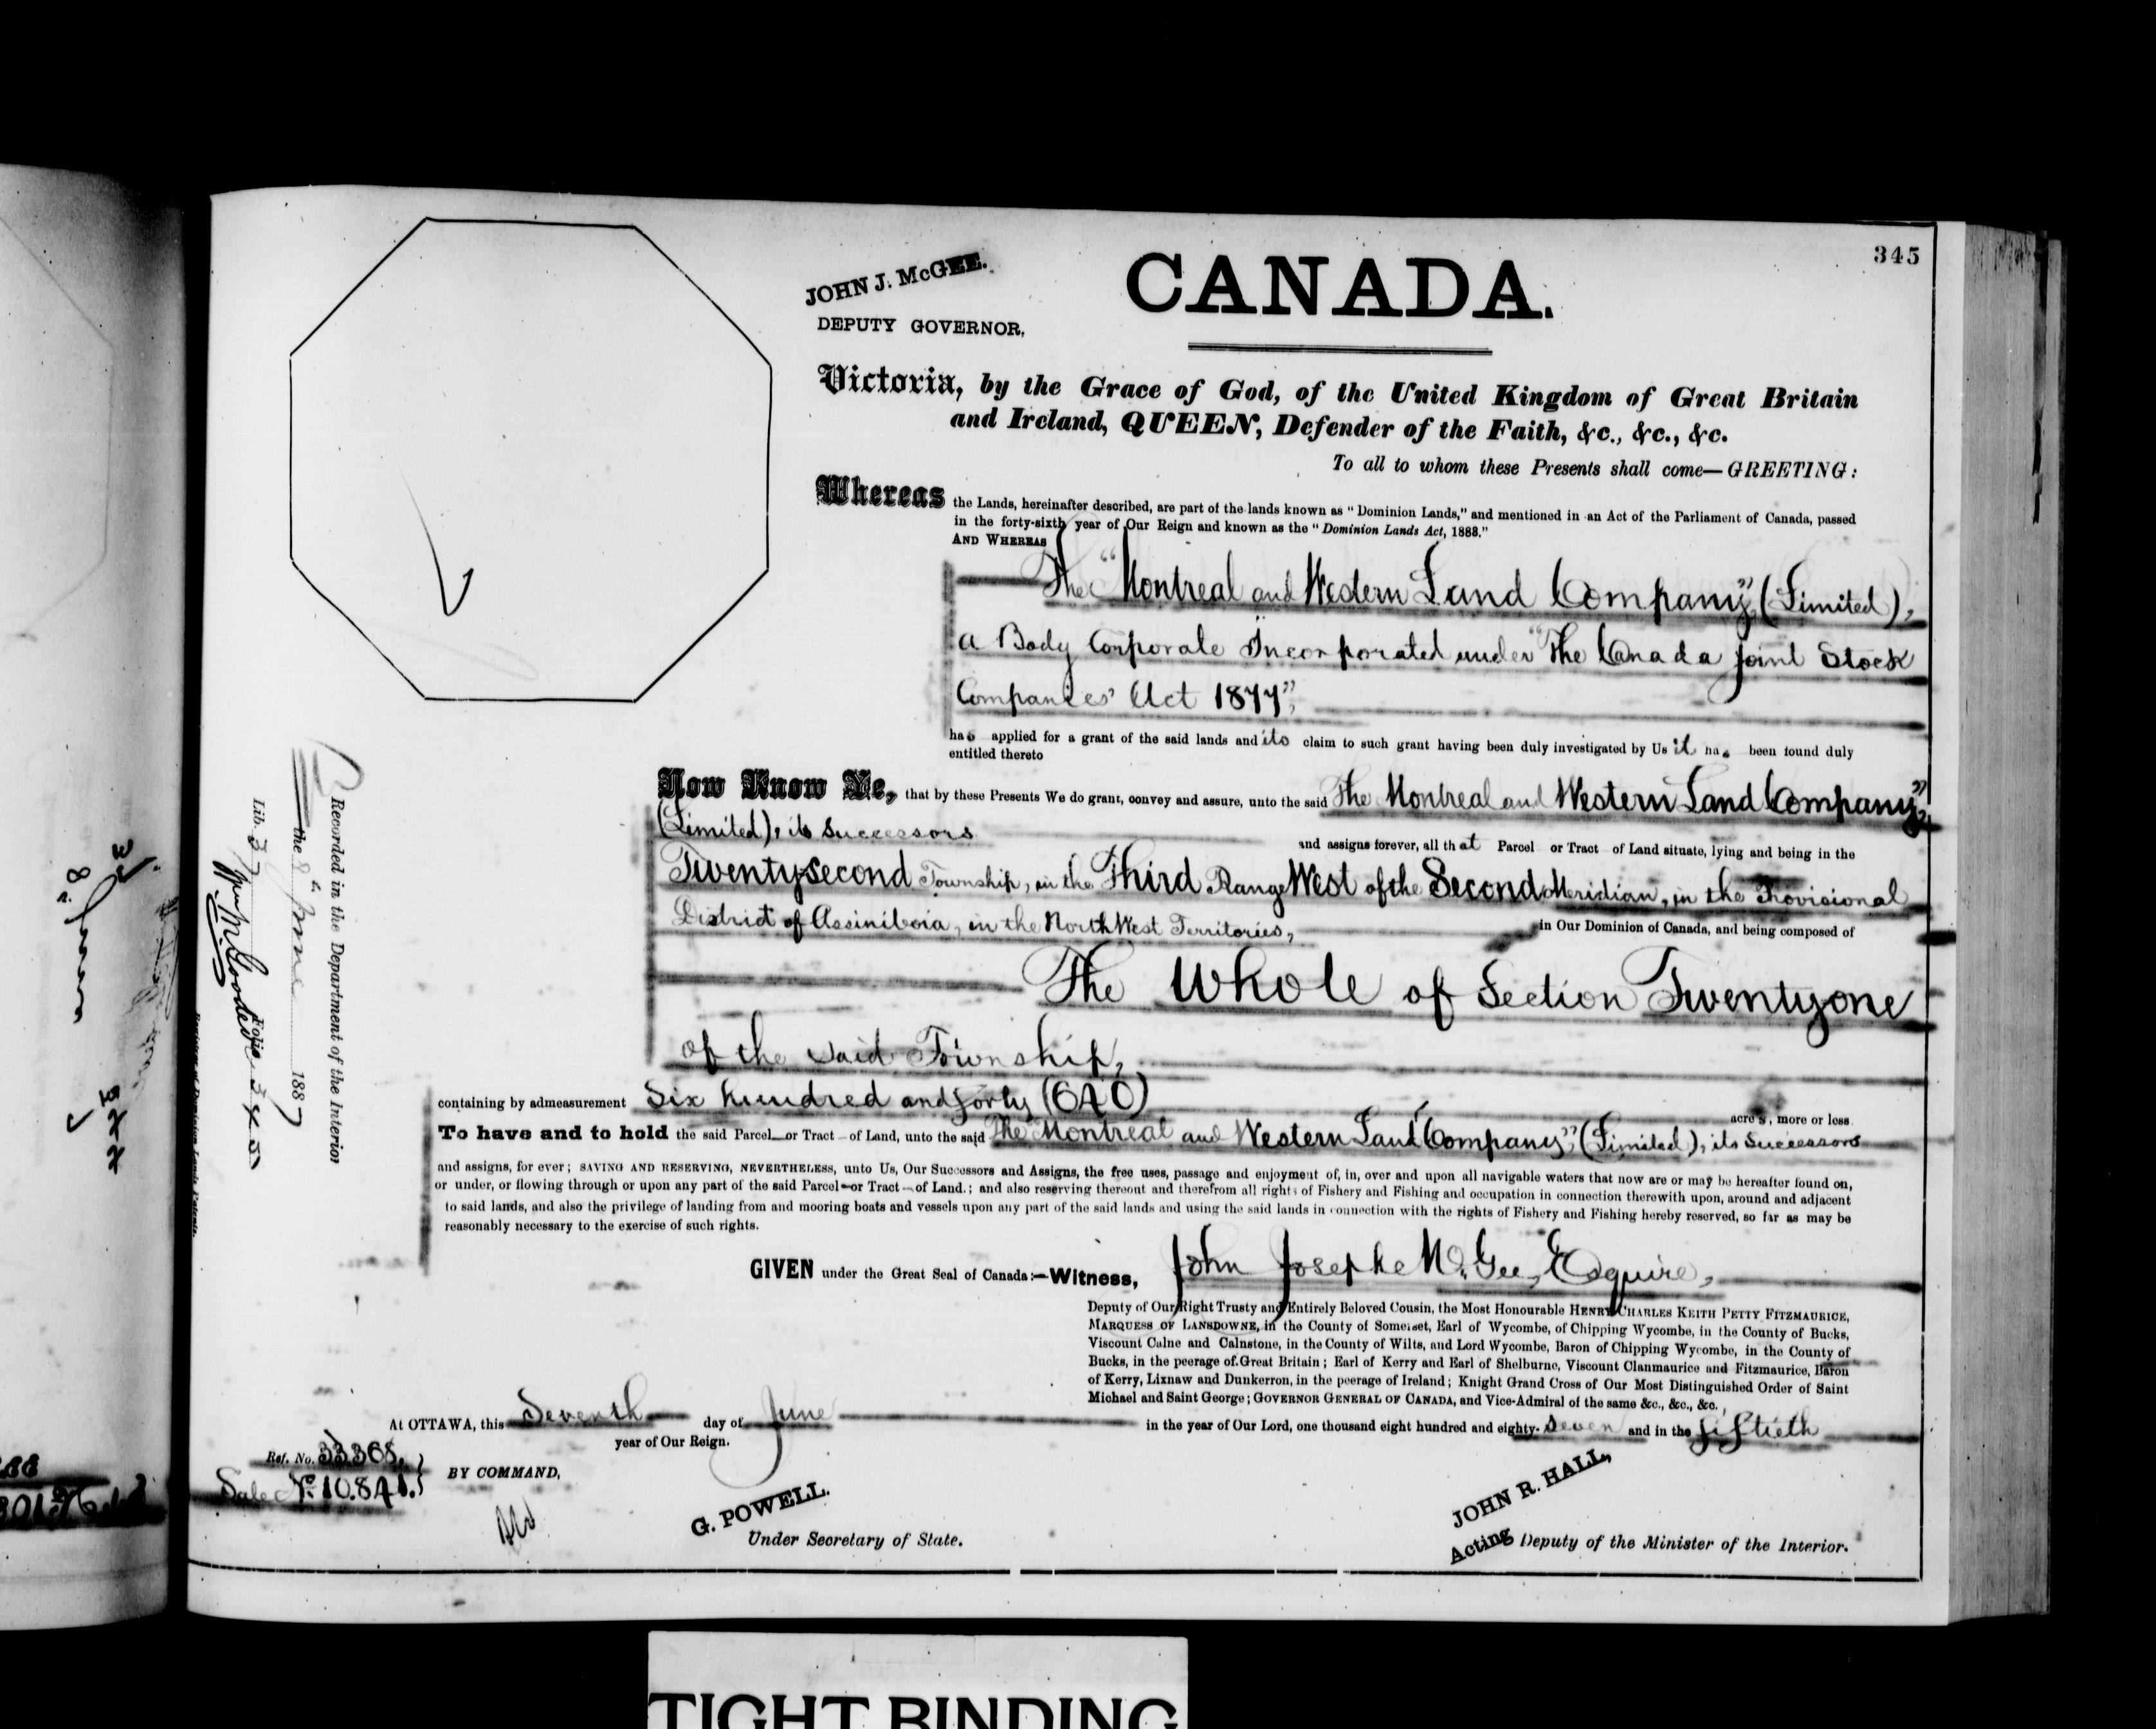 345
JOHN J. McGEE.
DEPUTY GOVERNOR,
CANADA.
Victoria, by the Grace of God, of the United Kingdom of Great Britain
and Ireland, QUEEN, Defender of the Faith, &c., &c., &c.
To all to whom these Presents shall come—GREETING:
Whereas the Lands, hereinafter described, are part of the lands known as "Dominion Lands," and mentioned in an Act of the Parliament of Canada, passed
in the forty-sixth year of Our Reign and known as the "Dominion Lands Act, 1883."
AND WHEREAS
The "Montreal and Western Land Company" (Limited),
a Body Corporate Incorporated under "The Canada Joint Stock
Companies' Act 1877",
has applied for a grant of the said lands and its claim to such grant having been duly investigated by Us it has been found duly
entitled thereto
Now Know Ye, that by these Presents We do grant, convey and assure, unto the said The Montreal and Western Land Company"
(Limited), its Successors
and assigns forever, all that Parcel or Tract of Land situate, lying and being in the
Twentysecond Township, in the Third Range West of the Second Meridian, in the Provisional
District of Assiniboia, in the North West Territories,
in Our Dominion of Canada, and being composed of
The Whole of Section Twentyone
of the said Township,
containing by admeasurement Six hundred and forty (640)
acres, more or less
To have and to hold the said Parcel or Tract of Land, unto the said The "Montreal and Western Land Company", (Limited), its Successors
and assigns, for ever; SAVING AND RESERVING, NEVERTHELESS, unto Us, Our Successors and Assigns, the free uses, passage and enjoyment of, in, over and upon all navigable waters that now are or may be hereafter found on,
or under, or flowing through or upon any part of the said Parcel or Tract of Land.; and also reserving thereout and therefrom all rights of Fishery and Fishing and occupation in connection therewith upon, around and adjacent
to said lands, and also the privilege of landing from and mooring boats and vessels upon any part of the said lands and using the said lands in connection with the rights of Fishery and Fishing hereby reserved, so far as may be
reasonably necessary to the exercise of such rights.
GIVEN under the Great Seal of Canada:—Witness, John Joseph McGee, Esquire,
Deputy of Our Right Trusty and Entirely Beloved Cousin, the Most Honourable HENRY CHARLES KEITH PETTY FITZMAURICE,
MARQUESS OF LANSDOWNE, in the County of Somerset, Earl of Wycombe, of Chipping Wycombe, in the County of Bucks,
Viscount Calne and Calnstone, in the County of Wilts, and Lord Wycombe, Baron of Chipping Wycombe, in the County of
Bucks, in the peerage of Great Britain; Earl of Kerry and Earl of Shelburne, Viscount Clanmaurice and Fitzmaurice, Baron
of Kerry, Lixnaw and Dunkerron, in the peerage of Ireland; Knight Grand Cross of Our Most Distinguished Order of Saint
Michael and Saint George; GOVERNOR GENERAL OF CANADA, and Vice-Admiral of the same &c., &c., &c.
At OTTAWA, this Seventh day of June in the year of Our Lord, one thousand eight hundred and eighty-seven and in the fiftieth
year of Our Reign.
Ref. No. 33368.
Sale No. 10.841.
BY COMMAND,
G. POWELL.
Under Secretary of State.
JOHN R. HALL,
Acting Deputy of the Minister of the Interior.
Recorded in the Department of the Interior
the 8th June 1887
Lib. 37 Folio 345
Wm M. Goodeve
Registrar of Dominion Lands Patents.
TIGHT BINDING